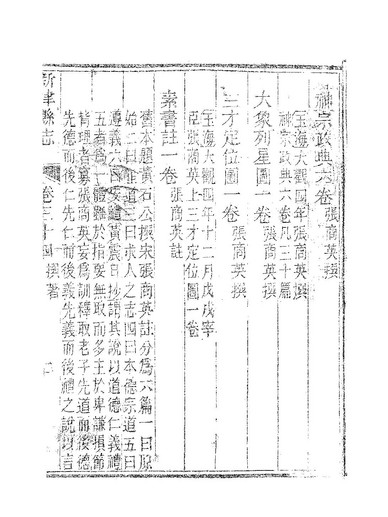 神宗政典六卷 張商英撰
玉海大觀四年張商英撰
神宗政典六卷凡三十篇
大象列星圖一卷 張商英撰
三才定位圖一卷 張商英撰
玉海大觀四年十二月戊戌宰
臣張商英上三才定位圖一卷
素書註一卷 張商英註
舊本題黃石公撰宋張商英註分為六篇一曰原
始二曰正道三曰求人之志四曰本德宗道五曰
遵義六曰安禮黃震日抄謂其說以道德仁義禮
五者為一體雖於指要無取而多主於卑謙損節
背理者寡張商英妄為訓釋取老子先道而後德
先德而後仁先仁而後義先義而後禮之說以言
新津縣志 卷三十四 撰著